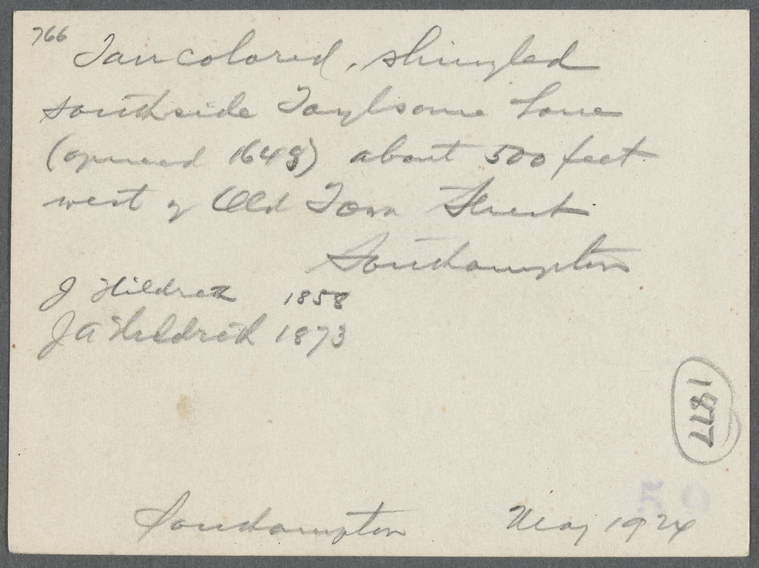 766
Tan colored, shingled
southside Toylsome Lane
(opened 1648) about 500 feet
west of Old Town Street
Southampton
J Hildreth 1858
J A Hildreth 1873
1877
Southampton May 1924